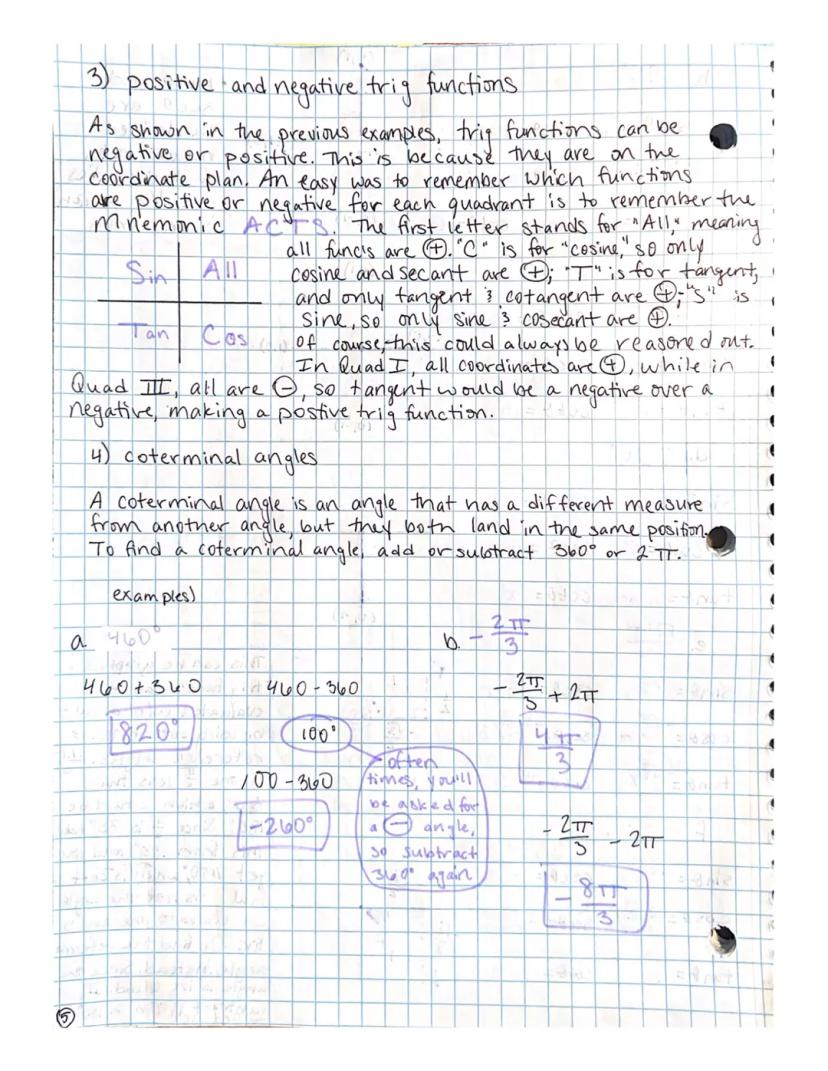 3) positive and negative trig functions
As shown in the previous examples, trig functions can be
negative or positive. This is because they are on the
coordinate plan. An easy was to remember which functions
are positive or negative for each quadrant is to remember the
Mnemonic ACTS. The first letter stands for "All," meaning
all func's are ⊕. "C" is for "cosine," so only
cosine and secant are ⊕; "T" is for tangent,
and only tangent & cotangent are ⊕; "S" is
sine, so only sine & cosecant are ⊕.
Sin All
Tan Cos
of course, this could always be reasoned out.
In Quad I, all coordinates are ⊕, while in
Quad III, all are ⊖, so tangent would be a negative over a
negative, making a postive trig function.
4) coterminal angles
A coterminal angle is an angle that has a different measure
from another angle, but they both land in the same position.
To find a coterminal angle, add or subtract 360° or 2π.
examples)
a. 460°
460 + 360
820°
460 - 360
100°
100 - 360
-260°
often
times, you'll
be asked for
a ⊖ angle,
so subtract
360° again
b. -2π/3
-2π/3 + 2π
4π/3
-2π/3 - 2π
-8π/3
5